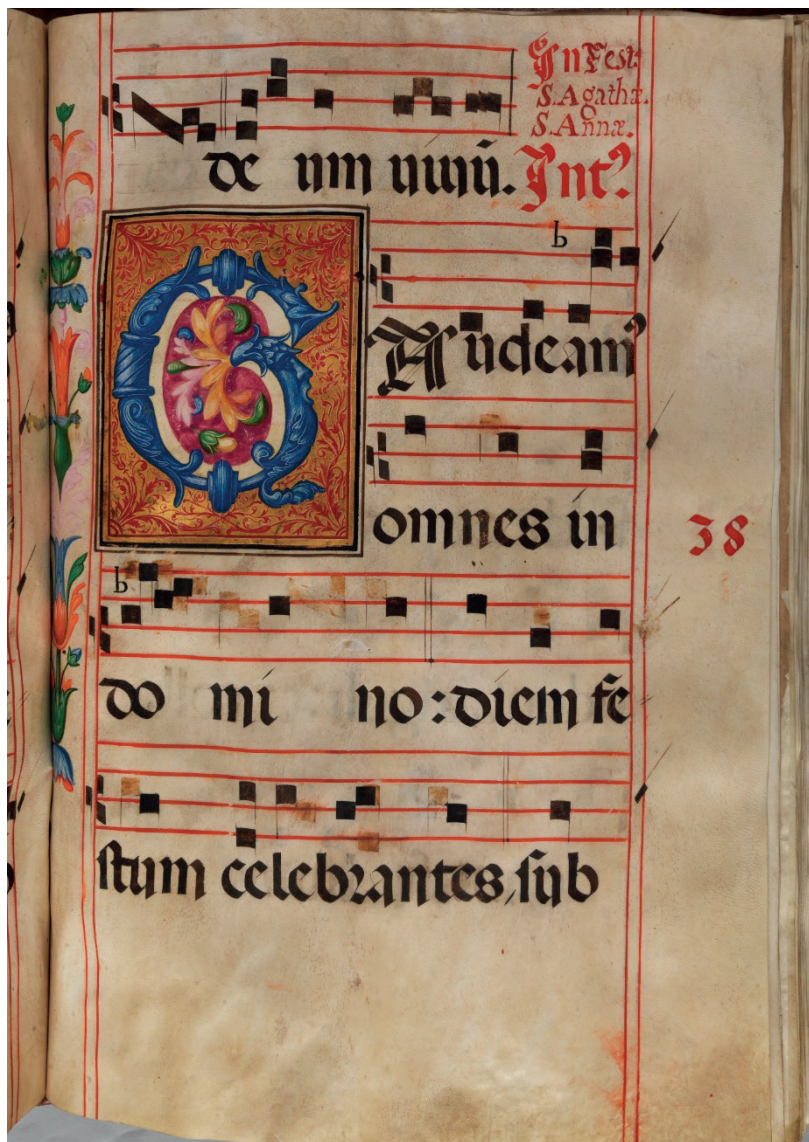 In Fest:
S. Agathæ.
S. Annæ.
de um unū. Intꝰ
GAudeamꝰ
omnes in
38
do mi no: diem fe
stum celebrantes, sub